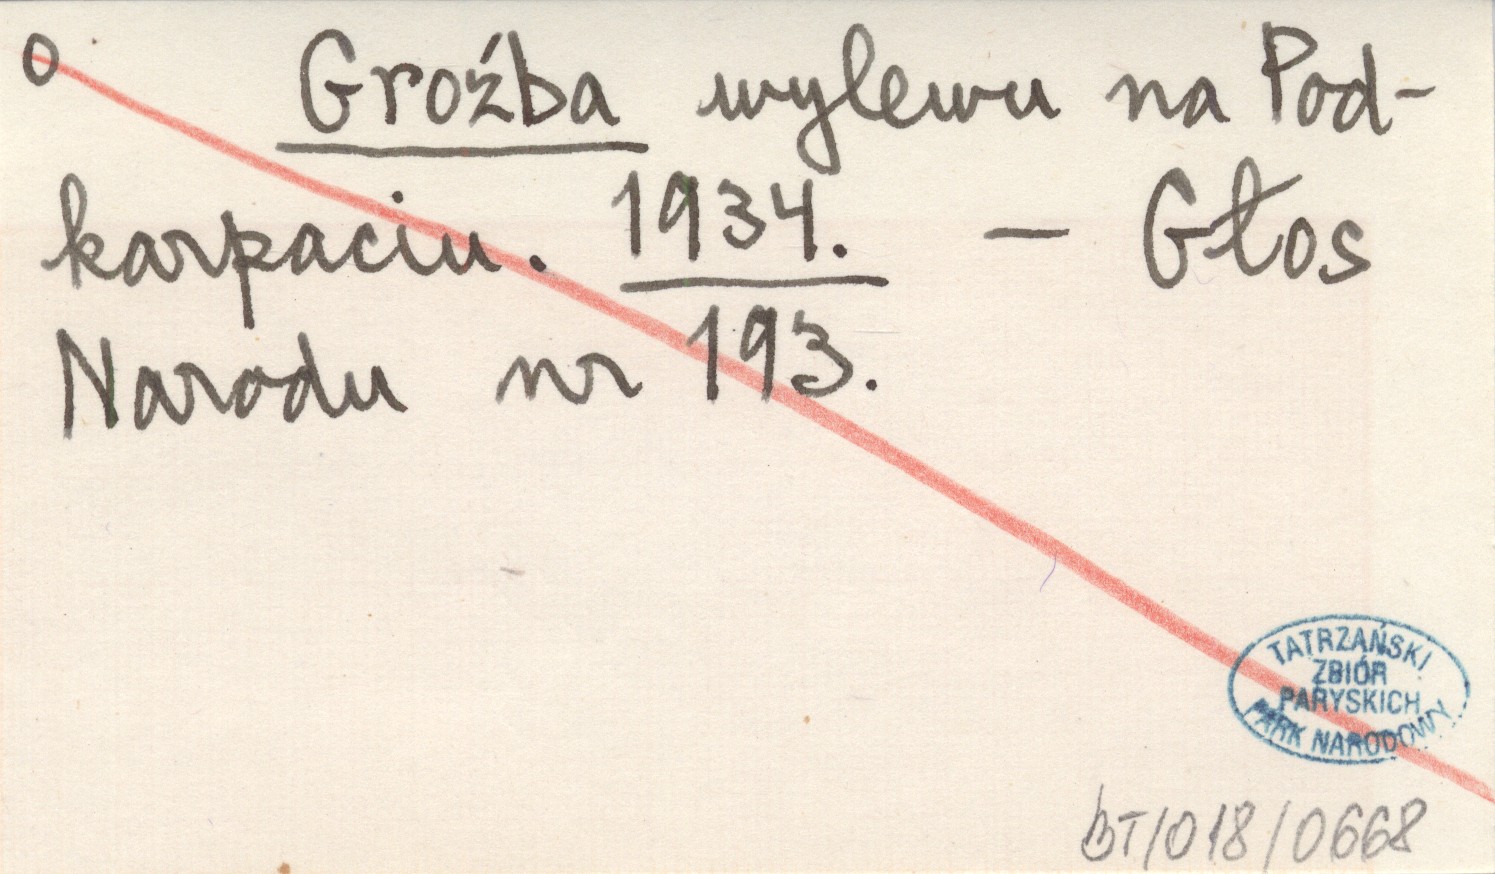 o Groźba wylewu na Pod-
karpaciu. 1934. — Głos
Narodu nr 193.
TATRZAŃSKI
ZBIÓR
PARYSKICH
PARK NARODOWY
BT/018/0668